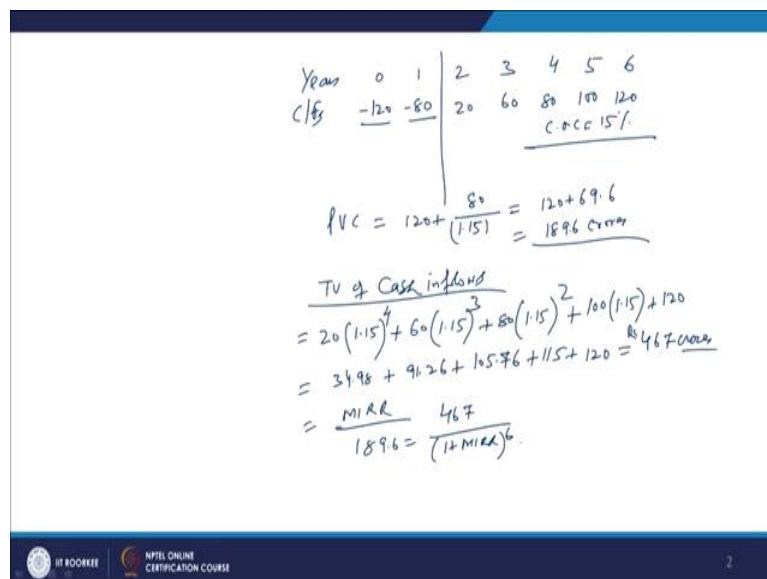 Years 0 1 2 3 4 5 6
C/fs -120 -80 20 60 80 100 120
C.O.C = 15%
PVC = 120+ 80/(1.15) = 120+69.6
= 189.6 crores
TV of Cash inflows
= 20(1.15)^4 + 60(1.15)^3 + 80(1.15)^2 + 100(1.15) + 120
= 34.98 + 91.26 + 105.76 + 115 + 120 = Rs 467 crores
= MIRR
189.6 = 467/(1+MIRR)^6.
IIT ROORKEE
NPTEL ONLINE
CERTIFICATION COURSE
2